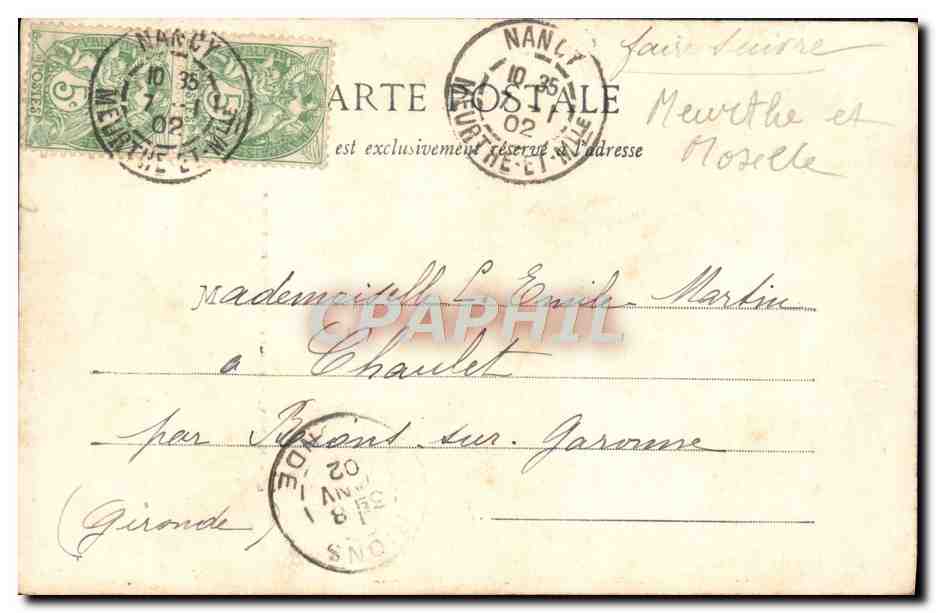 faire suivre
Meurthe et
Moselle
NANCY
10 35
7 -1
02
MEURTHE-ET-Mlle
NANCY
10 35
7 -1
02
MEURTHE-ET-Mlle
5c
POSTES
5c
ARTE POSTALE
est exclusivement réservé à l'adresse
Mademoiselle L. Emile Martin
CPAPHIL
à Chaulet
par Besons sur Garonne
(Gironde)
02
8